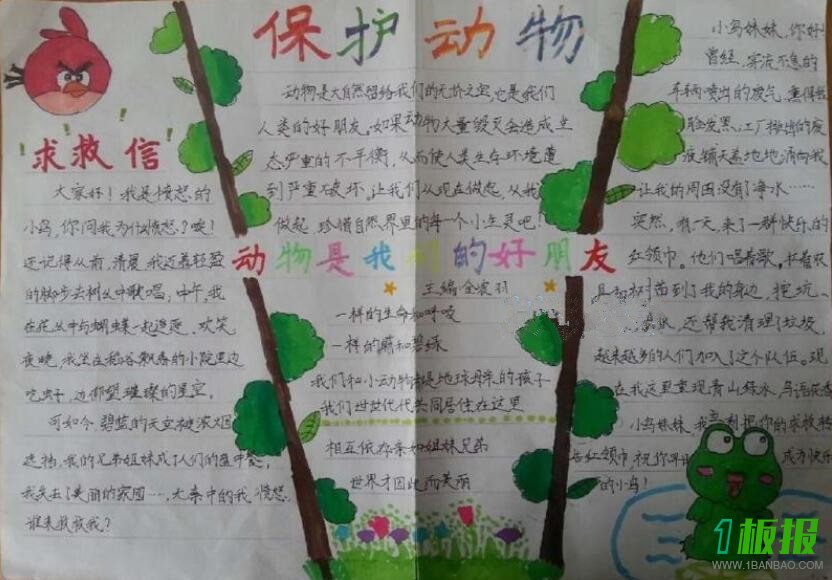 保护动物
求救信
大家好！我是愤怒的
小鸟，你问我为什么愤怒？唉！
还记得从前，清晨，我迈着轻盈
的脚步去树丛中歌唱，中午，我
在花丛中与蝴蝶一起追逐、欢笑
夜晚，我坐在稻谷飘香的小院里边
吃虫子，边都望璀璨的星空。
可如今，碧蓝的天空被浓烟
遮挡，我的兄弟姐妹成了人们的盘中餐，
我失去了美丽的家园……，大亲中的我 愤怒
谁来救救我？
动物是大自然留给我们的无价之宝，它是我们
人类的好朋友，如果动物大量毁灭会造成生
态严重的不平衡，从而使人类生存环境遭
到严重破坏。让我们从现在做起，从我
做起，珍惜自然界里的每一个小生灵吧！
动物是我们的好朋友
主编
一样的生命和呼吸
一样的蓝和碧绿
我们和小动物都是地球母亲的孩子
我们世世代代共同居住在这里
相互依存亲如姐妹兄弟
世界才因此而美丽
小鸟妹妹，你好！
曾经，穿流不息的
车辆喷出的废气，熏得我
脸发黑，工厂排出的废
液铺天盖地地涌向我
让我的周围没有了海水……
突然，有一天，来了一群快乐的
红领巾。他们唱着歌，扛着双
具和树苗到了我的身边，挖坑、
还帮我清理了垃圾，
越来越多的人们加入了这个队伍。现
在我这里重现青山绿水，鸟语花香
小鸟妹妹，我 利把你的求救转
与红领巾，祝你早 成为快乐
的小鸟！
1板报
WWW.1BANBAO.COM